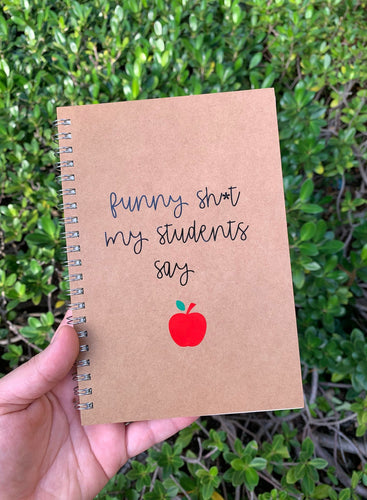 funny sh*t
my students
say